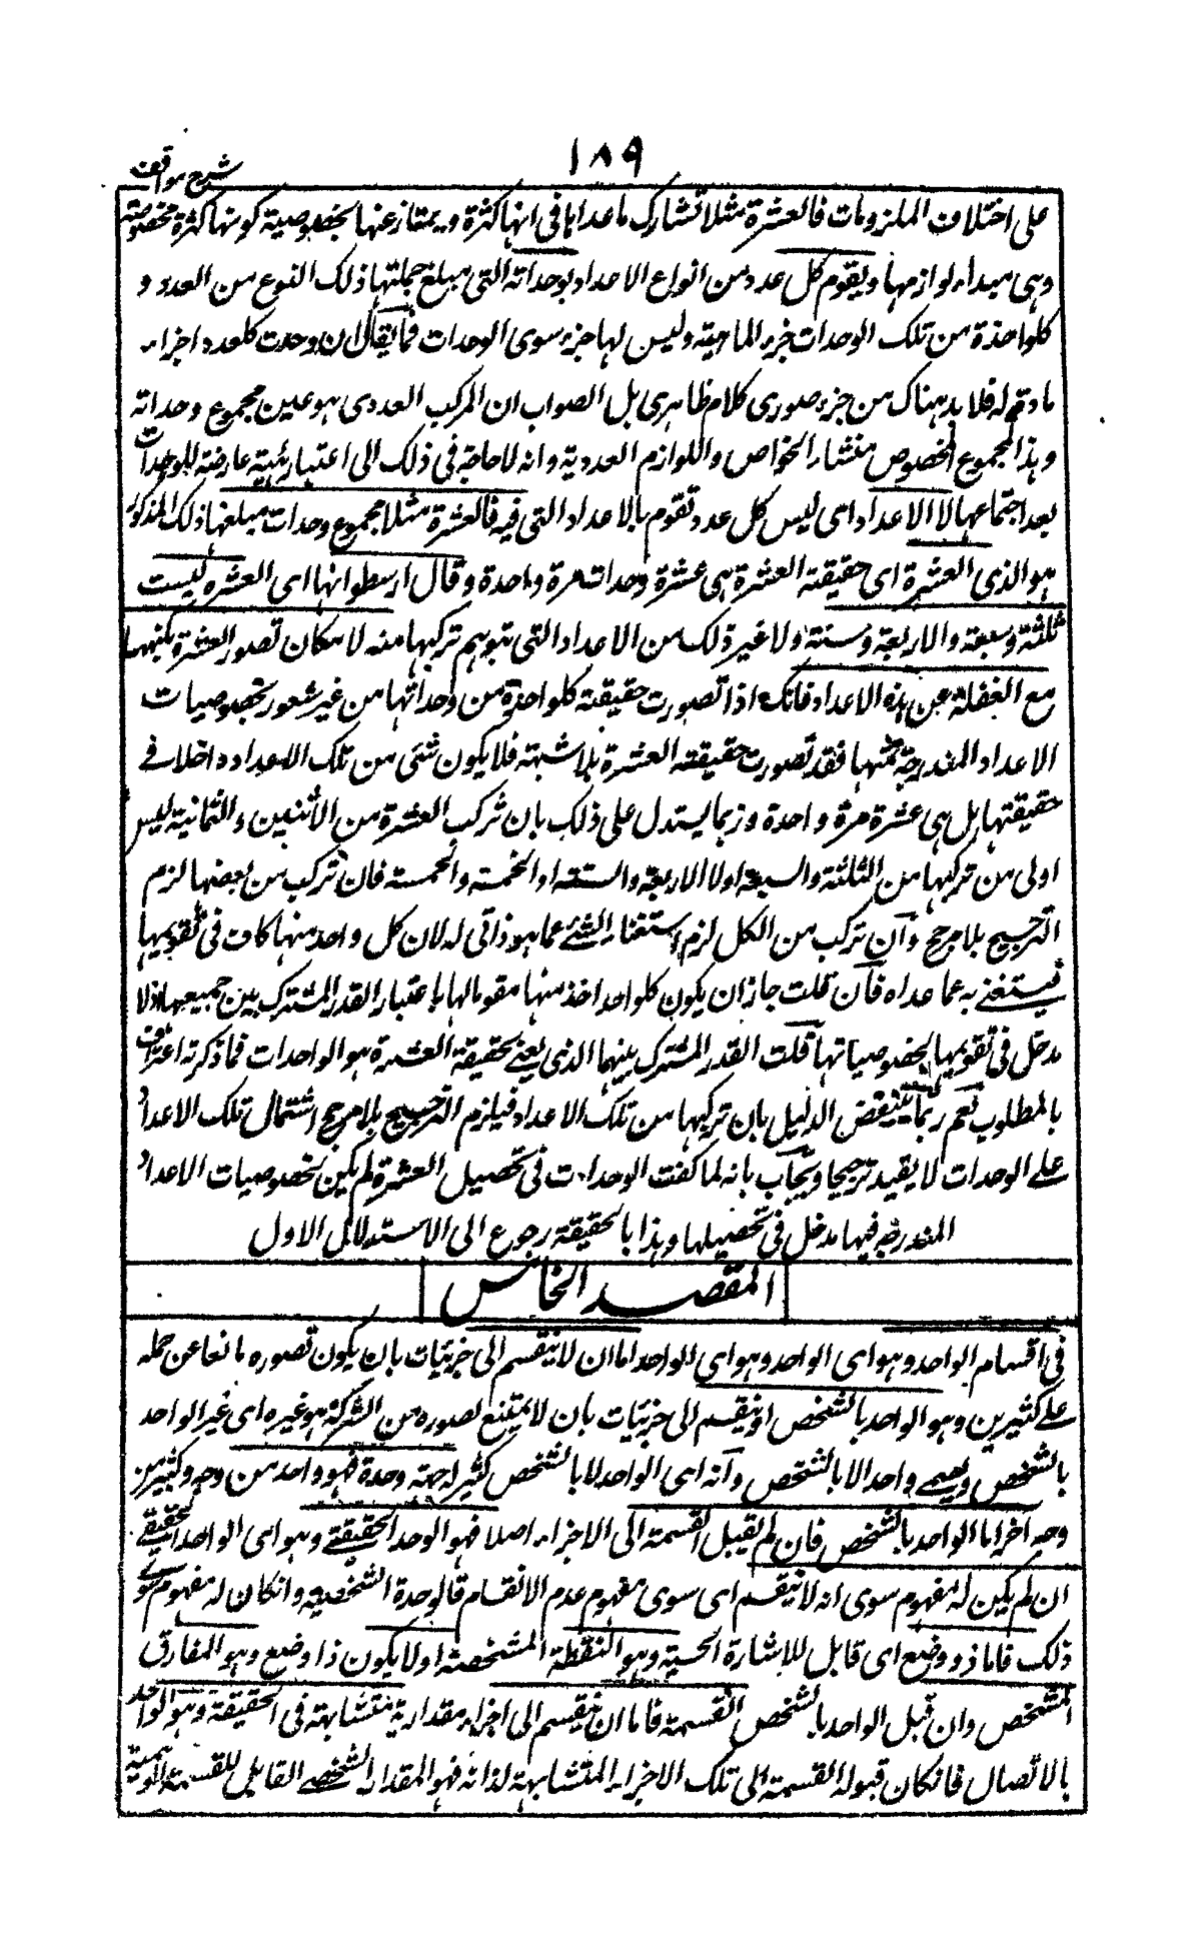 ١٨٩
شرح مواقف
على اختلاف الملزومات فالعشرة مثلا تشارك ما عداها فى انها كثرة ويمتاز عنها بخصوصية كونها كثرة مخصوصة
وهى مبداء لوازمها ويقوم كل عدد من انواع الاعداد بوحداته التى مبلغ جملتها ذلك النوع من العدد و
كلواحدة من تلك الوحدات جزء الماهيته وليس لها جزء سوى الوحدات فما يقال ان وحدت كلعدد اجزاء
مادية له فلا بد هناك من جزء صورى كلام ظاهرى بل الصواب ان المركب العددى هو عين مجموع وحداته
وهذا المجموع المخصوص منشار الخواص واللوازم العددية وانه لا حاجة فى ذلك الى اعتبار هيئية عارضة للوحدات
بعد اجتماعها لا الاعداد اى ليس كل عدد تقوم بالاعداد التى فيه فالعشرة مثلا مجموع وحدات مبلغها ذلك المذكور
هو الذى العشرة اى حقيقته العشرة هى عشرة وحدات مرة واحدة وقال ارسطو انها اى العشره ليست
ثلثة وسبعة والاربعة وستة ولا غير ذلك من الاعداد التى يتوهم تركبها منه لامكان تصور العشرة بكنهها
مع الغفلة عن هذه الاعداد فانك اذا تصورت حقيقته كلواحدة من وحداتها من غير شعور بخصوصيات
الاعداد المندرجة تحتها فقد تصورت حقيقته العشرة بلا شبهة فلا يكون شئ من تلك الاعداد داخلا فى
حقيقتها بل هى عشرة مرة واحدة وربما يستدل على ذلك بان تركب العشرة من الاثنين والثمانية ليس
اولى من تركبها من الثلثة والسبعة اولا الاربعة والستة او الخمسة والخمسة فان تركب من بعضها لزم
الترجيح بلا مرجح وان تركب من الكل لزم استغناء الشئ عما هو ذاتى له لان كل واحد منها كاف فى تقويمها
فيستغنى به عما عداه فان قلت جاز ان يكون كلواحد اخذ منها مقوما لها باعتبار القدر المشترك بين جميعها اذ لا
مدخل فى تقويمها لخصوصياتها قلت القدر المشترك بينهما الذى يفى بحقيقة العشرة هو الواحدات فما ذكرته اعتراف
بالمطلوب نعم ربما ينتقض الدليل بان تركبها من تلك الاعداد فيلزم الترجيح بلا مرجح اشتمال تلك الاعداد
على الوحدات لا يفيد ترجيحا ويجاب بانه لما كفت الوحدات فى تحصيل العشرة لم يكن لخصوصيات الاعداد
المندرجة فيها مدخل فى تحصيلها وهذا بالحقيقة رجوع الى الاستدلال الاول
المقصد الخامس
فى اقسام الواحد وهو اى الواحد وهو اى الواحد اما ان لا ينقسم الى جزئيات بان يكون تصوره مانعا عن حمله
على كثيرين وهو الواحد بالشخص او ينقسم الى جزئيات بان لا يمتنع تصوره من الشركة هو غيره اى غير الواحد
بالشخص ويسمى واحدا لا بالشخص وانه اى الواحد لا بالشخص كثير له جهة وحدة فهو واحد من وجه وكثير من
وجه اخر اما الواحد بالشخص فان لم يقبل القسمة الى الاجزاء اصلا فهو الواحد الحقيقى وهو اى الواحد الحقيقى
ان لم يكن له مفهوم سوى انه لا ينقسم اى سوى مفهوم عدم الانقسام فالوحدة الشخصية وان كان له مفهوم سوى
ذلك فاما ذو وضع اى قابل للاشارة الحسية وهو النقطة المشخصة او لا يكون ذا وضع وهو المفارق
المتشخص وان قبل الواحد بالشخص القسمة فاما ان ينقسم الى اجزاء مقدارية متشابهة فى الحقيقة وهو الواحد
بالاتصال فان كان قبوله القسمة الى تلك الاجزاء المتشابهة لذاته فهو المقدار الشخصى القابل للقسمة الوهمية